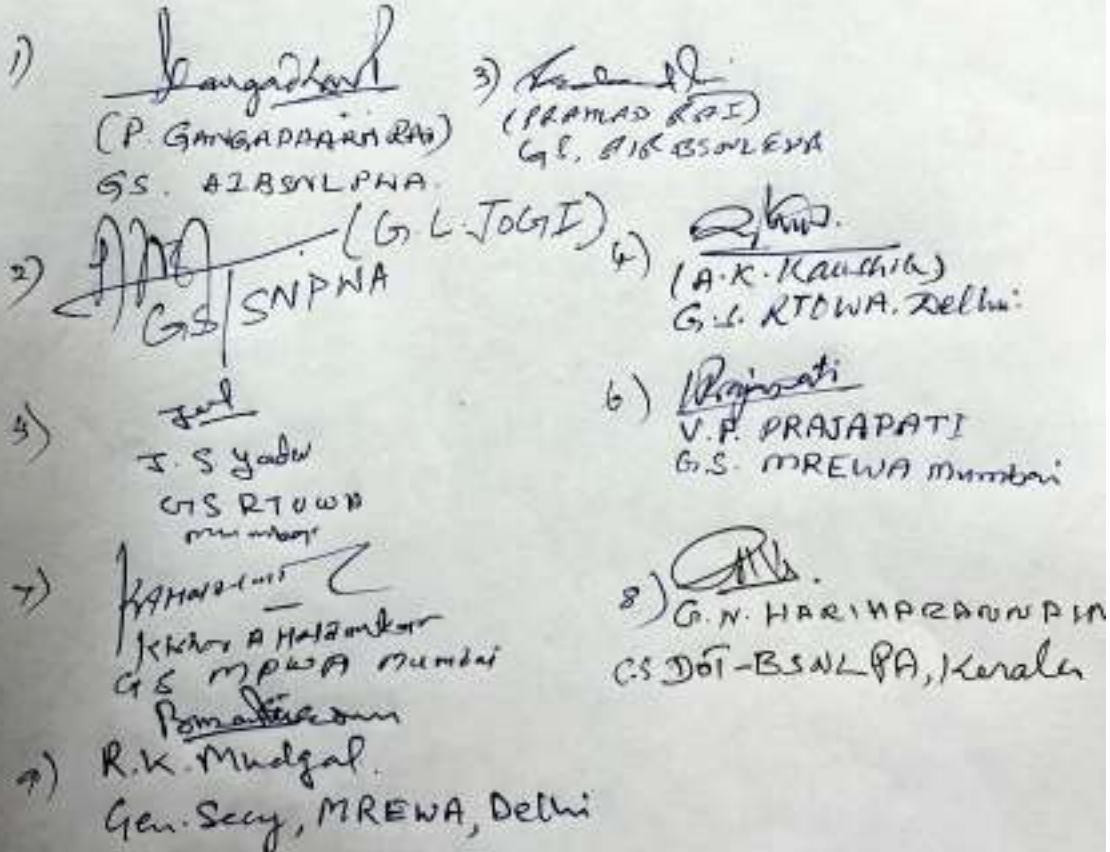 1)
(P. GANGADHARA RAO)
GS. AIBSNLPWA.
2) (G. L. JOGI)
GS/SNPWA
3)
(PRAHLAD RAI)
GS. AIRBSNLEWA
4)
(A.K. Kaushik)
G.S. RTOWA. Delhi.
5)
J. S Yadav
GS RTOWA
mumbai
6) Prajapati
V.P. PRAJAPATI
G.S. MREWA Mumbai
7)
Kishor A Haldankar
GS MPWA Mumbai
8)
G.N. HARIHARANN
CS DOT-BSNL PA, Kerala
9) R.K. Mudgal.
Gen. Secy, MREWA, Delhi